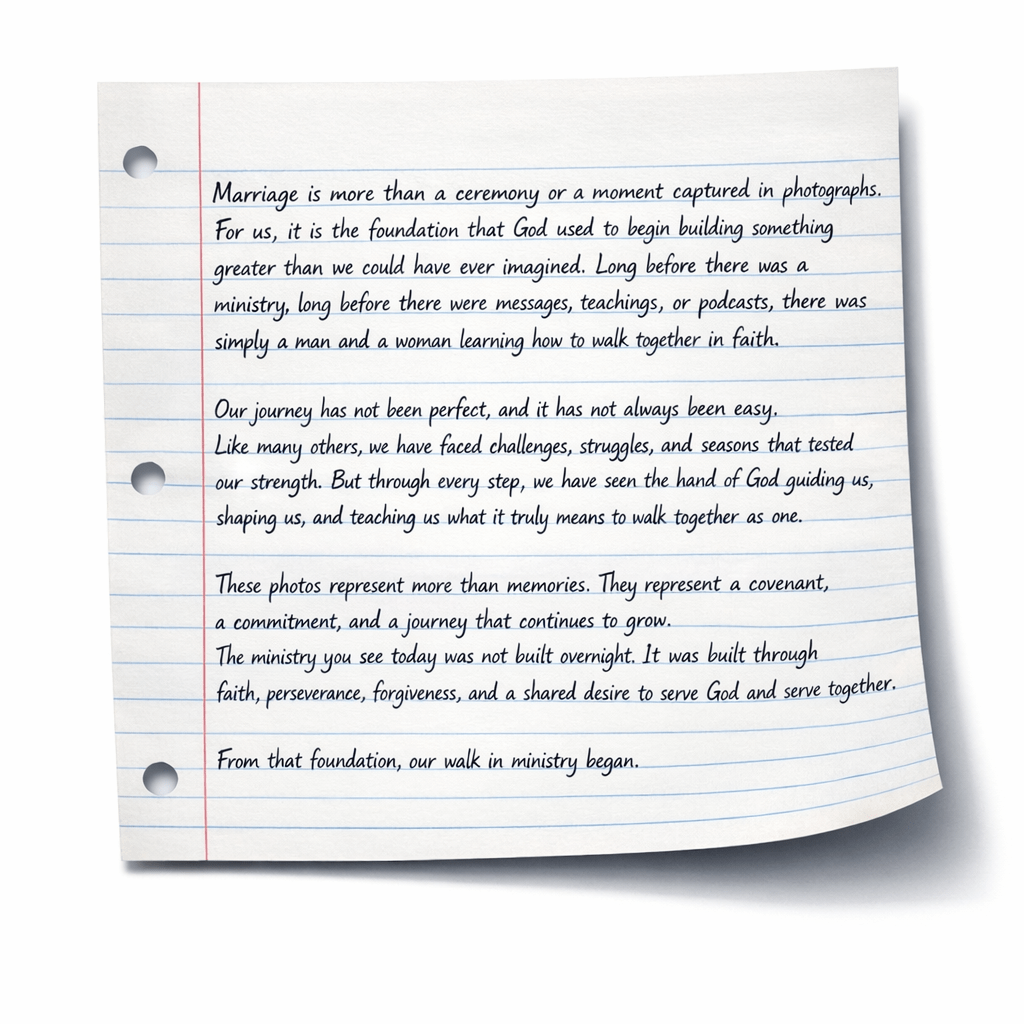 Marriage is more than a ceremony or a moment captured in photographs.
For us, it is the foundation that God used to begin building something
greater than we could have ever imagined. Long before there was a
ministry, long before there were messages, teachings, or podcasts, there was
simply a man and a woman learning how to walk together in faith.
Our journey has not been perfect, and it has not always been easy.
Like many others, we have faced challenges, struggles, and seasons that tested
our strength. But through every step, we have seen the hand of God guiding us,
shaping us, and teaching us what it truly means to walk together as one.
These photos represent more than memories. They represent a covenant,
a commitment, and a journey that continues to grow.
The ministry you see today was not built overnight. It was built through
faith, perseverance, forgiveness, and a shared desire to serve God and serve together.
From that foundation, our walk in ministry began.